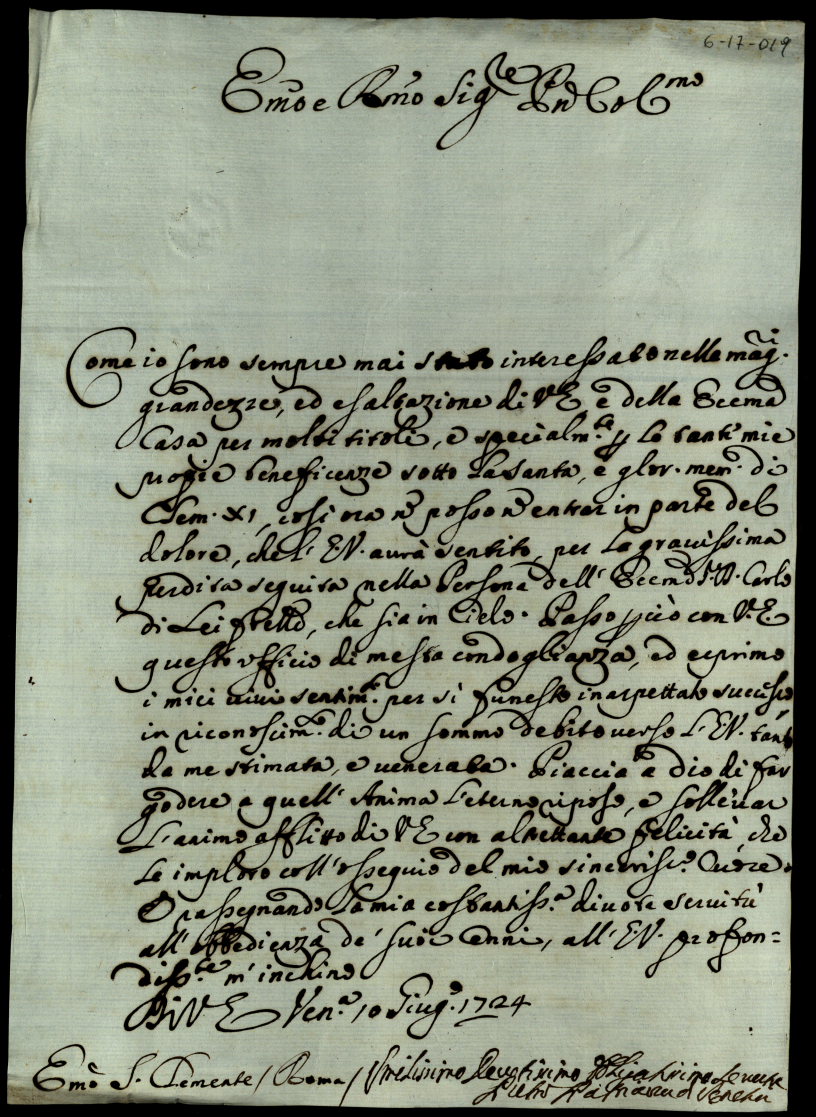 6-17-019
Emo e Rmo Sigre Pne Col Cmo
Come io sono sempre mai stato interessato nelle mag.i
grandezze, ed esaltazione di VE e della Eccema
Casa per molti titoli, e specialm.te p le tanti mie
beneficenze sotto la Santa, e glor. mem. di
Clem. XI, così ora n posso n entrar in parte del
dolore, che l' E.V. aurà sentito, per la grauissima
perdita seguita nella Persona dell' Eccemo Carlo
di Lei frello, che sia in Cielo. Passo pciò con V.E.
questo officio di mesta condoglianza, ed esprimo
i miei uiui sentim.ti per sì funesto inaspettato successo
in riconoscim.o di un sommo debito uerso l' E.V. tanto
da me stimata, e uenerata. Piaccia a dio di far
godere a quell' Anima l'eterno riposo, e solleuar
l'animo afflitto di VE con altrettante felicità, che
le imploro coll' ossequio del mio sinceriss.o Cuore.
E rassegnando la mia costantiss.a diuota seruitù
all' obbedienza de' suoi Cenni, all' E.V. profon=
diss.te m' inchino
Di VE Ven.a 10 Giug.o 1724
Emo S. Clemente / Roma / Umilissimo Deuotissimo Obligatissimo Seruitore
Pietro Patriarca di Venetia